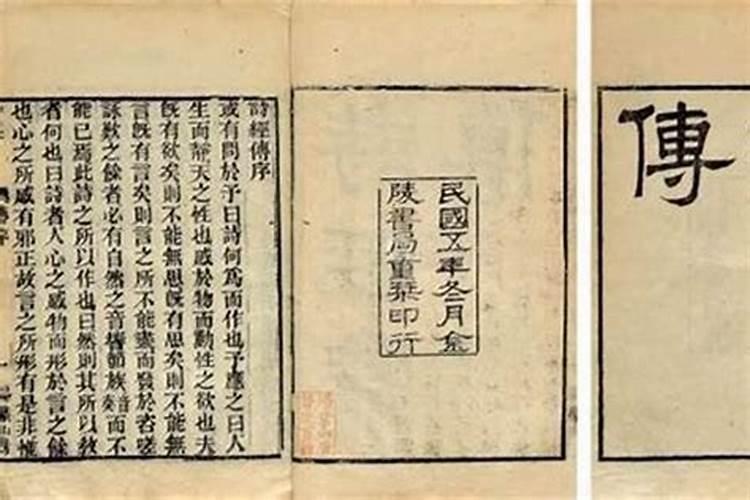 傳
民國五年冬二月金
陵書局重栞印行
詩經傳序
或有問於予曰詩何爲而作也予應之曰人
生而靜天之性也感於物而動性之欲也夫
旣有欲矣則不能無思旣有思矣則不能無
言旣有言矣則言之所不能盡而發於咨嗟
詠歎之餘者必有自然之音響節族音奏而不
能已焉此詩之所以作也曰然則其所以敎
者何也曰詩者人心之感物而形於言之餘
也心之所感有邪正故言之所形有是非惟